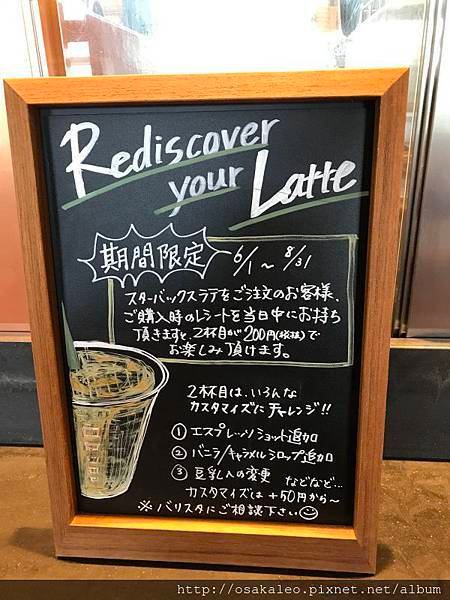 Rediscover
your Latte
期間限定 6/1 ~ 8/31
スターバックスラテをご注文のお客様、
ご購入時のレシートを当日中にお持ち
頂きますと、2杯目が200円(税抜)で
お楽しみ頂けます。
2杯目は、いろんな
カスタマイズにチャレンジ!!
① エスプレッソショット追加
② バニラ/キャラメルシロップ追加
③ 豆乳への変更 などなど…
カスタマイズは +50円から~
※ バリスタにご相談下さい☺
http://osakaleo.pixnet.net/album